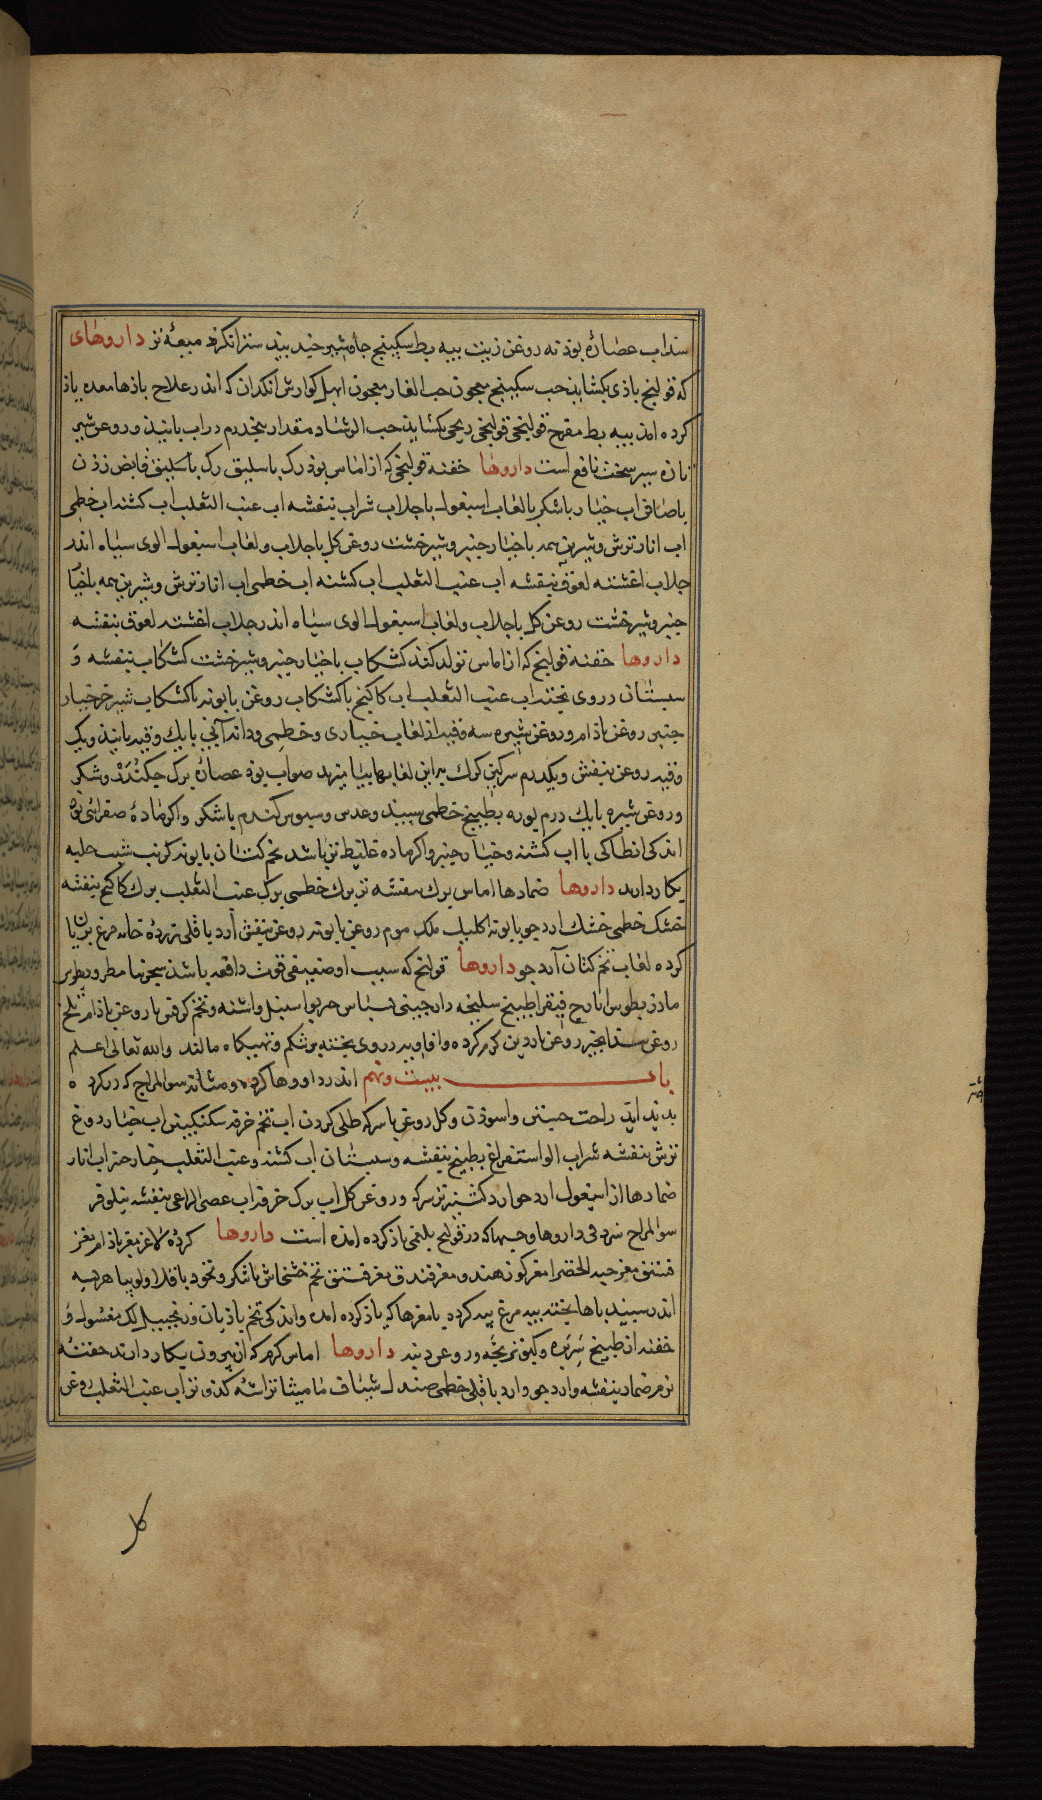 سداب عصارۀ بوذنه روغن زیت پیه بط سکبینج جاوشیر جند بیدستر انکژد میعۀ تر داروهای
که قولنج باذی بکشاید حب سکبینج معجون حب الغار معجون ابهل کوارش انکدان که اندر علاج باذها معده یاذ
کرده امد پیه بط مفرح قولنجی قولنجی ریحی بکشاید حب الرشاد مقدار پنجدرم در اب یا نبیذ و روغن شیر
تازه سیر سخت نافع است داروها حقنه قولنجی که از اماس بوذ رک باسلیق رک باسلیق قابض زدن
با صافی اب خیار با شکر یا لعاب اسبغول با جلاب شراب بنفشه اب عنب الثعلب اب کشنه اب خطمی
اب انار ترش و شیرین همه با خیار جنبر و شیرخشت روغن کل با جلاب و لعاب اسبغول الوی سیاه اندر
جلاب اغشته لعوق بنفشه اب عنب الثعلب اب کشنه اب خطمی اب انار ترش و شیرین همه با خیار
جنبر و شیرخشت روغن کل با جلاب و لعاب اسبغول الوی سیاه اندر جلاب اغشته لعوق بنفشه
داروها حقنه قولنج که از اماس تولد کند کشکاب با خیار جنبر و شیرخشت کشکاب بنفشه و
سبستان درروی پخته اب عنب الثعلب اب کاکنج با کشکاب روغن بابونه با کشکاب شیر خر خیار
جنبر روغن باذام و روغن شیره سه وقیه از لعاب خیاری و خطمی و دانه آبی با یک وقیه پانیذ و یک
وقیه روغن بنفش و یکدرم سرکین کرک بر این لعابها بیامیزند صواب بوذ عصارۀ برک چکندر و شکر
و روغن شیره با یک درم بوره بطبیخ خطمی سپید و عدس و سبوس کندم با شکر و اکر مادۀ صفرائی بوذ
اندکی انطاکی با اب کشنه و خیار جنبر و اکر ماده غلیظ تر باشد تخم کتان بابونه کرنب شبت حلبه
بکار دارند داروها ضمادها اماس برک بنفشه تر برک خطمی برک عنب الثعلب برک کاکنج بنفشه
خشک خطمی خشک ارد جو بابونه اکلیل ملک موم روغن بابونه روغن بنفش آرد باقلی زردۀ خایه مرغ بریان
کرده لعاب تخم کتان آرد جو داروها قولنج که سبب او ضعیفی قوت دافعه باشد
ماذریطوس ایارج فیقرا طبیخ سلیخه دارچینی اسنبل و اشنه و تخم کرفس با روغن باذام تلخ
روغن روغن ناردین کرم کرده و افاویه درروی پخته بر شکم و تهیکاه مالند والله تعالی اعلم
باب بیست و نهم اندر داروها کرده و مثانه سو المزاج که در کرده
بدید اید راحت جستن و اسوذن و کل روغن با سرکه طلی کردن اب تخم خرفه سکنکبین اب خیار دوغ
ترش بنفشه شراب الو استفراغ بطبیخ بنفشه و سبستان اب کشنه و عنب الثعلب خیار جنبر اب انار
ضمادها از اسبغول ارد جو ارد کشنیز تر سرکه و روغن کل اب برک خرفه اب عصی الراعی بنفشه نیلوفر
سو المزاج سرد داروها که در قولنج بلغمی یاذ کرده امذه است داروها کردۀ لاغر مغز باذام مغز
فستق مغز حبة الخضرا مغز کوز هندو مغز فندق مغز فستق تخم خشخاش با شکر و نخود باقلا و لوبیا هریسه
اندر سپید باها پخته پیه مرغ پیه کرده با مغزها که یاذ کرده امده و اندکی تخم رازیانه و زنجبیل لک مغسول و
حقنه از طبیخ سر بره و کبوتر بچه و روغن دنبه داروها اماس کرم که از بیرون بکار دارند حقنه
نرم ضماد بنفشه و ارد جو و ارد باقلی خطمی صندل شیاف مامیثا تراشه کذو تر اب عنب الثعلب روغن
کل